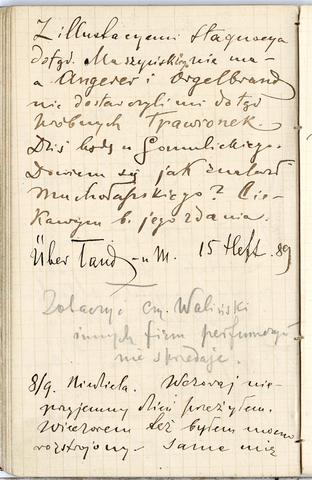 Z illustracyami stagnacya
dotąd. Maszyński nie ma –
a Angerer i Orgelbrand
nie dostarczyli mi dotąd
próbnych trawionek.
Dziś będę u Gomulickiego.
Dowiem się jak znalazł
Muchotapskiego? Cie-
kawym b. jego zdania.
Über Land u M. 15 Heft. 89
Zobaczyć czy Waliński
innych firm perfumeryi
nie sprzedaje.
8/9. Niedziela. Wczoraj nie-
przyjemny dzień przeżyłem.
Wieczorem też byłem mocno
rozstrojony – Same nie